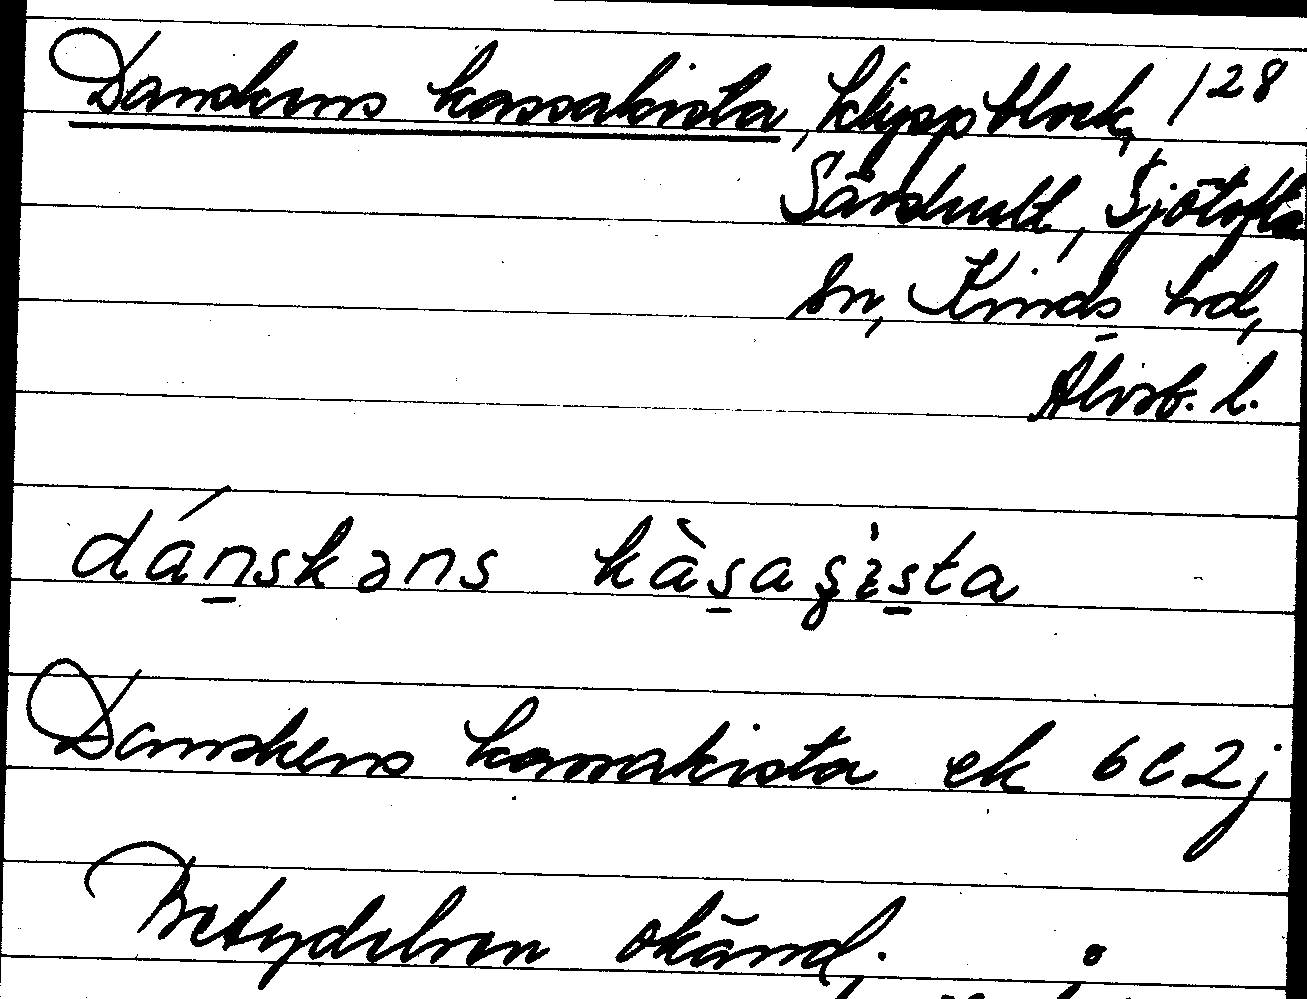 Danskens kassakista, klippblock, 128
Särshult, Sjötofta
sn, Kinds hd,
Älvsb. l.
dánskəns kàsaʂìsta
Danskens kassakista ek 6c2j
Betydelsen okänd.